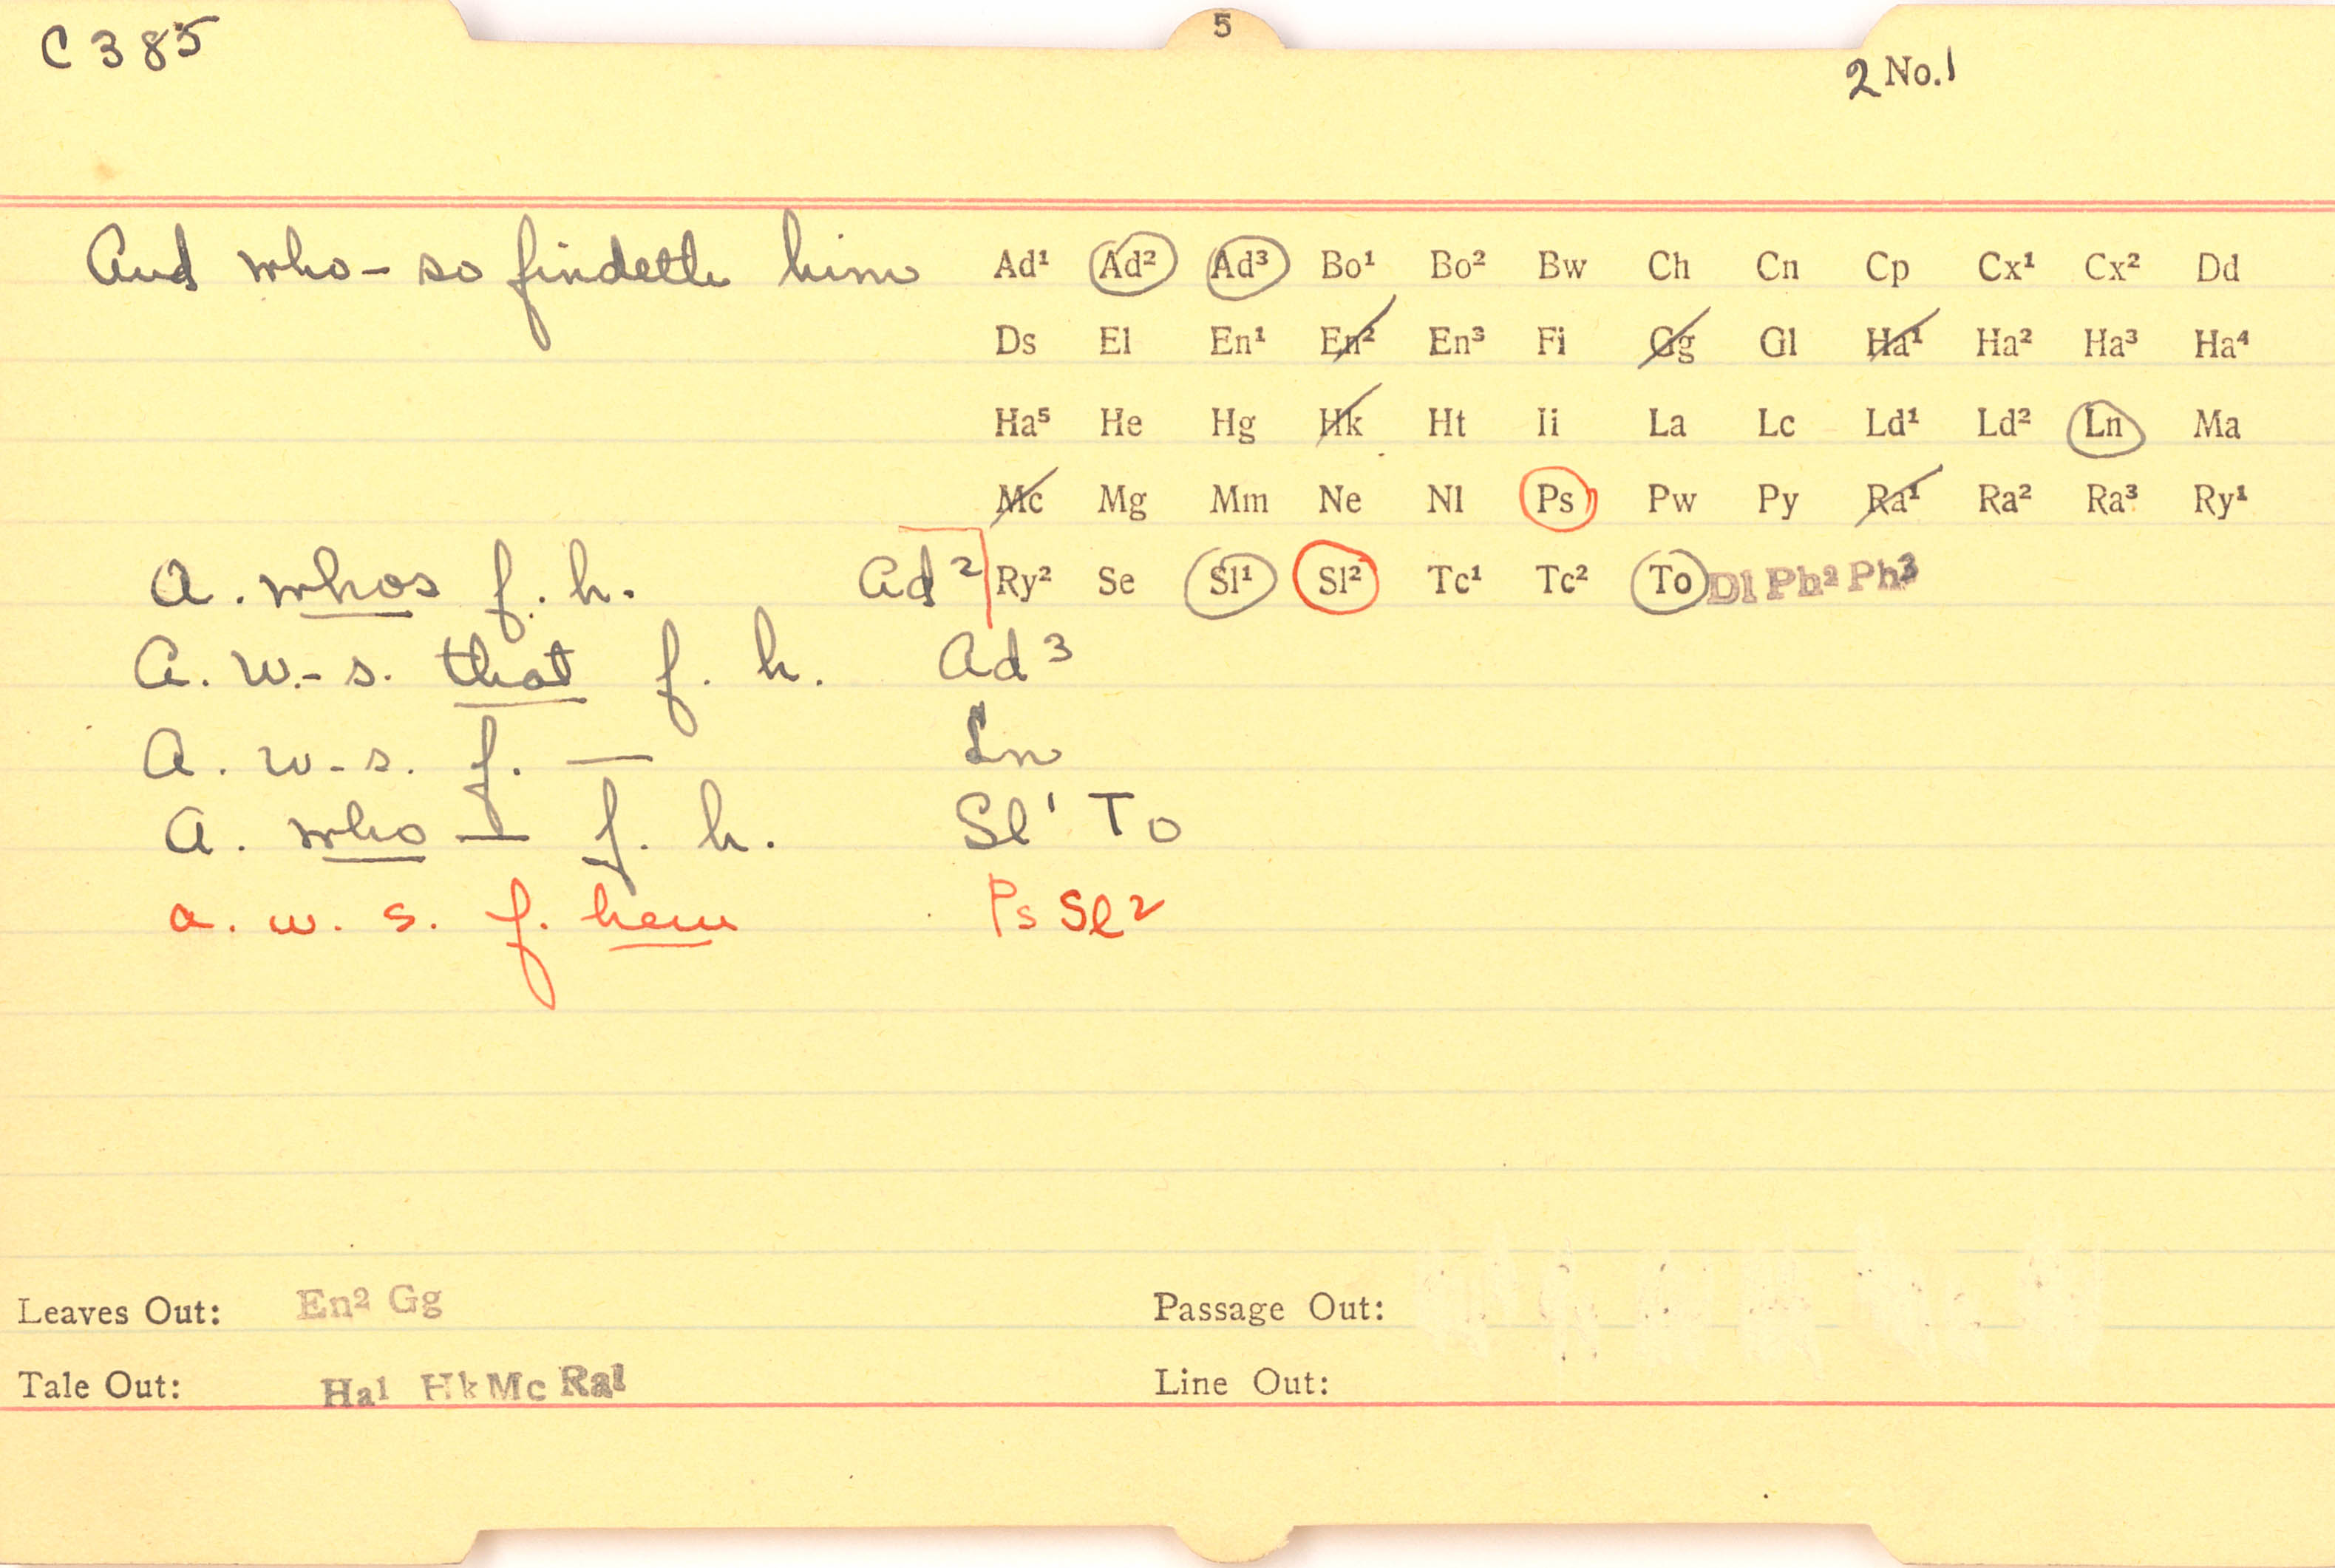 C 385
5
2 No. 1
And who-so findeth him
Ad¹ Ad² Ad³ Bo¹ Bo² Bw Ch Cn Cp Cx¹ Cx² Dd
Ds El En¹ En² En³ Fi Gg Gl Ha¹ Ha² Ha³ Ha⁴
Ha⁵ He Hg Hk Ht Ii La Lc Ld¹ Ld² Ln Ma
Mc Mg Mm Ne Nl Ps Pw Py Ra¹ Ra² Ra³ Ry¹
Ry² Se Sl¹ Sl² Tc¹ Tc² To Dl Ph² Ph³
A. whos f. h. Ad²
A. w.-s. that f. h. Ad³
A. w-s. f. — Ln
A. who — f. h. Sl¹ To
a. w. s. f. hem Ps Sl²
Leaves Out: En² Gg
Passage Out:
Tale Out: Ha¹ Hk Mc Ra¹
Line Out: